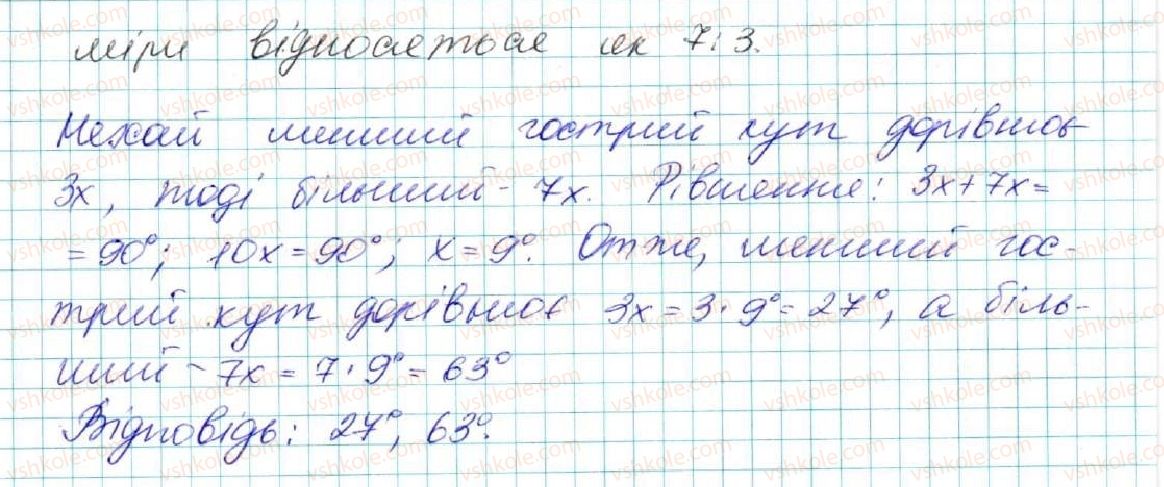 міри відносяться як 7:3.
Нехай менший гострий кут дорівнює
3x, тоді більший - 7x. Рівняння: 3x+7x=
=90°; 10x=90°; x=9°. Отже, менший гос-
трий кут дорівнює 3x=3·9°=27°, а біль-
ший - 7x=7·9°=63°
Відповідь: 27°, 63°.